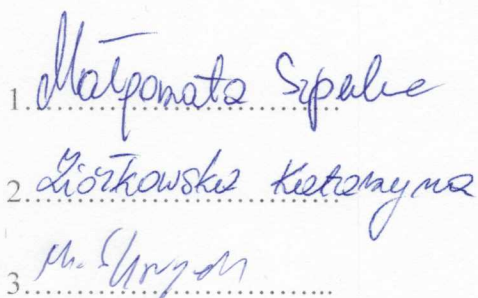 1. Małgorzata
2. Ziółkowska Katarzyna
3. M.